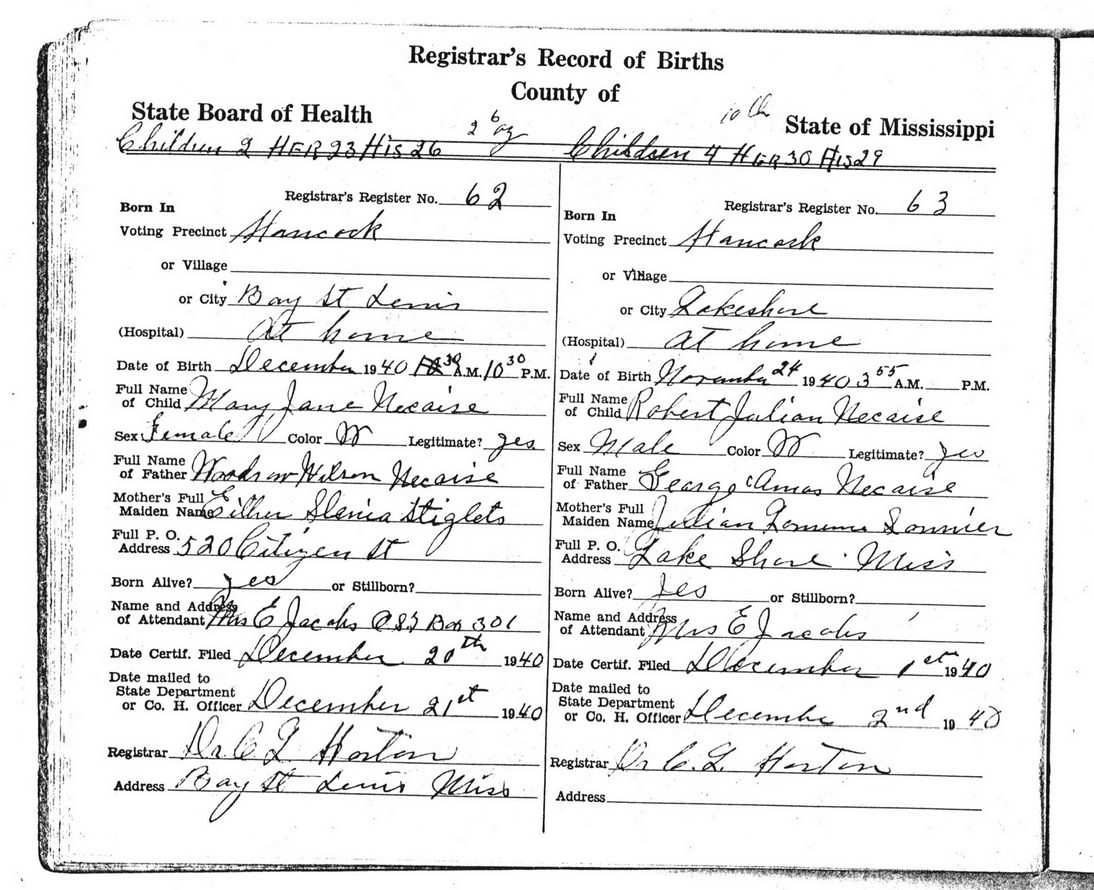 Registrar's Record of Births
County of
State Board of Health
State of Mississippi
10th
Children 2 HER 23 HIS 26
Children 4 HER 30 HIS 29
Registrar's Register No. 62
Born In
Voting Precinct Hancock
or Village
or City Bay St Louis
(Hospital) at home
Date of Birth December 1940 A.M. 10 30 P.M.
Full Name
of Child Mary Jane Necaise
Sex Female Color W Legitimate? yes
Full Name
of Father Woodrow Wilson Necaise
Mother's Full
Maiden Name Stiglets
Full P. O.
Address 520 Citizen St
Born Alive? yes or Stillborn?
Name and Address
of Attendant Mrs E Jacobs Box 301
Date Certif. Filed December 20th 1940
Date mailed to
State Department
or Co. H. Officer December 21st 1940
Registrar Dr C L Horton
Address Bay St Louis Miss
Registrar's Register No. 63
Born In
Voting Precinct Hancock
or Village
or City Lakeshore
(Hospital) at home
Date of Birth November 24 1940 3 55 A.M. P.M.
Full Name
of Child Robert Julian Necaise
Sex Male Color W Legitimate? yes
Full Name
of Father George Amos Necaise
Mother's Full
Maiden Name Julian
Full P. O.
Address Lake Shore Miss
Born Alive? yes or Stillborn?
Name and Address
of Attendant Mrs E Jacobs
Date Certif. Filed December 1st 1940
Date mailed to
State Department
or Co. H. Officer December 2nd 1940
Registrar Dr C. L. Horton
Address